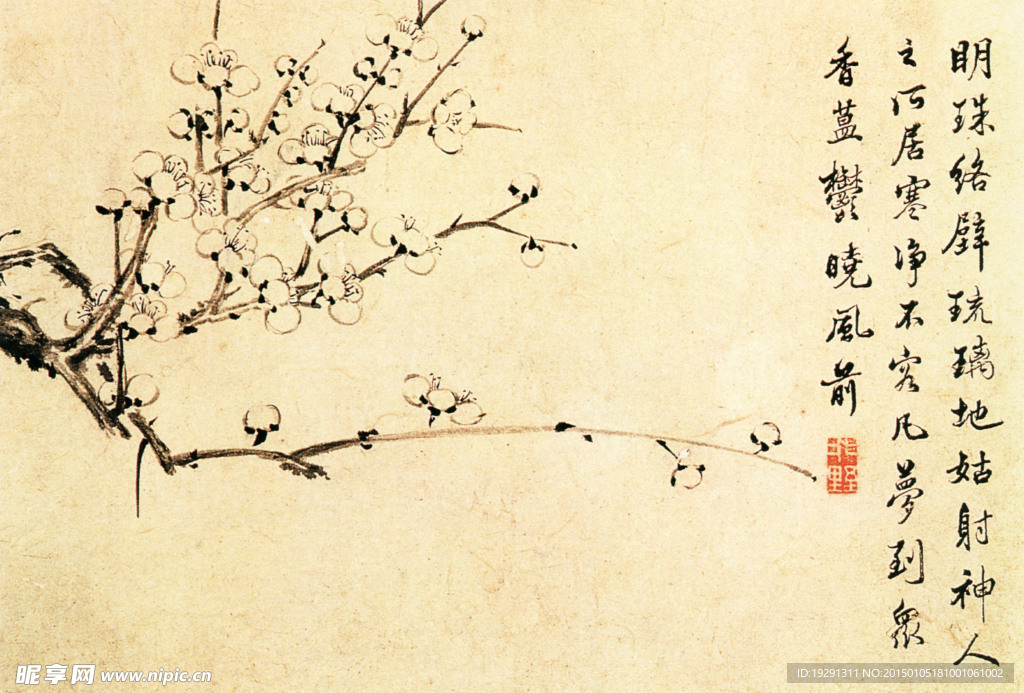 明珠絡辟琉璃地姑射神人
之所居寒淨不容凡夢到眾
香蒀鬱曉風前
昵享网 www.nipic.cn
ID:19291311 NO:20150105181001061002